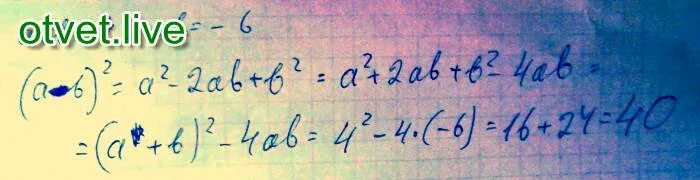 otvet.live
= - 6
(a-b)² = a² - 2ab + b² = a² + 2ab + b² - 4ab =
= (a + b)² - 4ab = 4² - 4·(-6) = 16 + 24 = 40